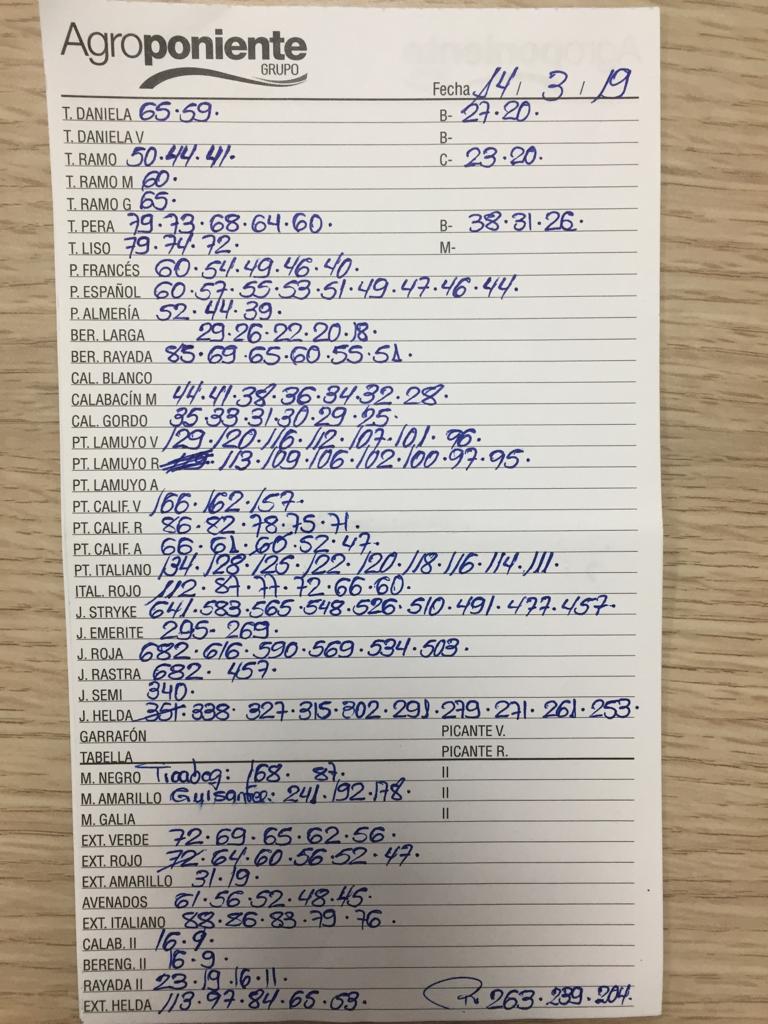 Agroponiente
GRUPO
Fecha 14 / 3 / 19
T. DANIELA 65·59· B- 27·20·
T. DANIELA V B-
T. RAMO 50·44·41· C- 23·20·
T. RAMO M 60·
T. RAMO G 65·
T. PERA 79·73·68·64·60· B- 38·31·26·
T. LISO 79·74·72· M-
P. FRANCÉS 60·54·49·46·40·
P. ESPAÑOL 60·57·55·53·51·49·47·46·44·
P. ALMERÍA 52·44·39·
BER. LARGA 29·26·22·20·18·
BER. RAYADA 85·69·65·60·55·51·
CAL. BLANCO
CALABACÍN M 44·41·38·36·34·32·28·
CAL. GORDO 35·33·31·30·29·25·
PT. LAMUYO V 129·120·116·112·107·101·96·
PT. LAMUYO R 113·109·106·102·100·97·95·
PT. LAMUYO A
PT. CALIF. V 166·162·157·
PT. CALIF. R 86·82·78·75·71·
PT. CALIF. A 66·61·60·52·47·
PT. ITALIANO 134·128·125·122·120·118·116·114·111·
ITAL. ROJO 112·87·77·72·66·60·
J. STRYKE 641·583·565·548·526·510·491·477·457·
J. EMERITE 295·269·
J. ROJA 682·616·590·569·534·503·
J. RASTRA 682·457·
J. SEMI 340·
J. HELDA 351·338·327·315·302·291·279·271·261·253·
GARRAFÓN PICANTE V.
TABELLA PICANTE R.
M. NEGRO 168· 87· II
M. AMARILLO Guisante: 241·192·178· II
M. GALIA II
EXT. VERDE 72·69·65·62·56·
EXT. ROJO 72·64·60·56·52·47·
EXT. AMARILLO 31·19·
AVENADOS 61·56·52·48·45·
EXT. ITALIANO 88·86·83·79·76·
CALAB. II 16·9·
BERENG. II 16·9·
RAYADA II 23·19·16·11·
EXT. HELDA 113·97·84·65·53· R· 263·239·204·